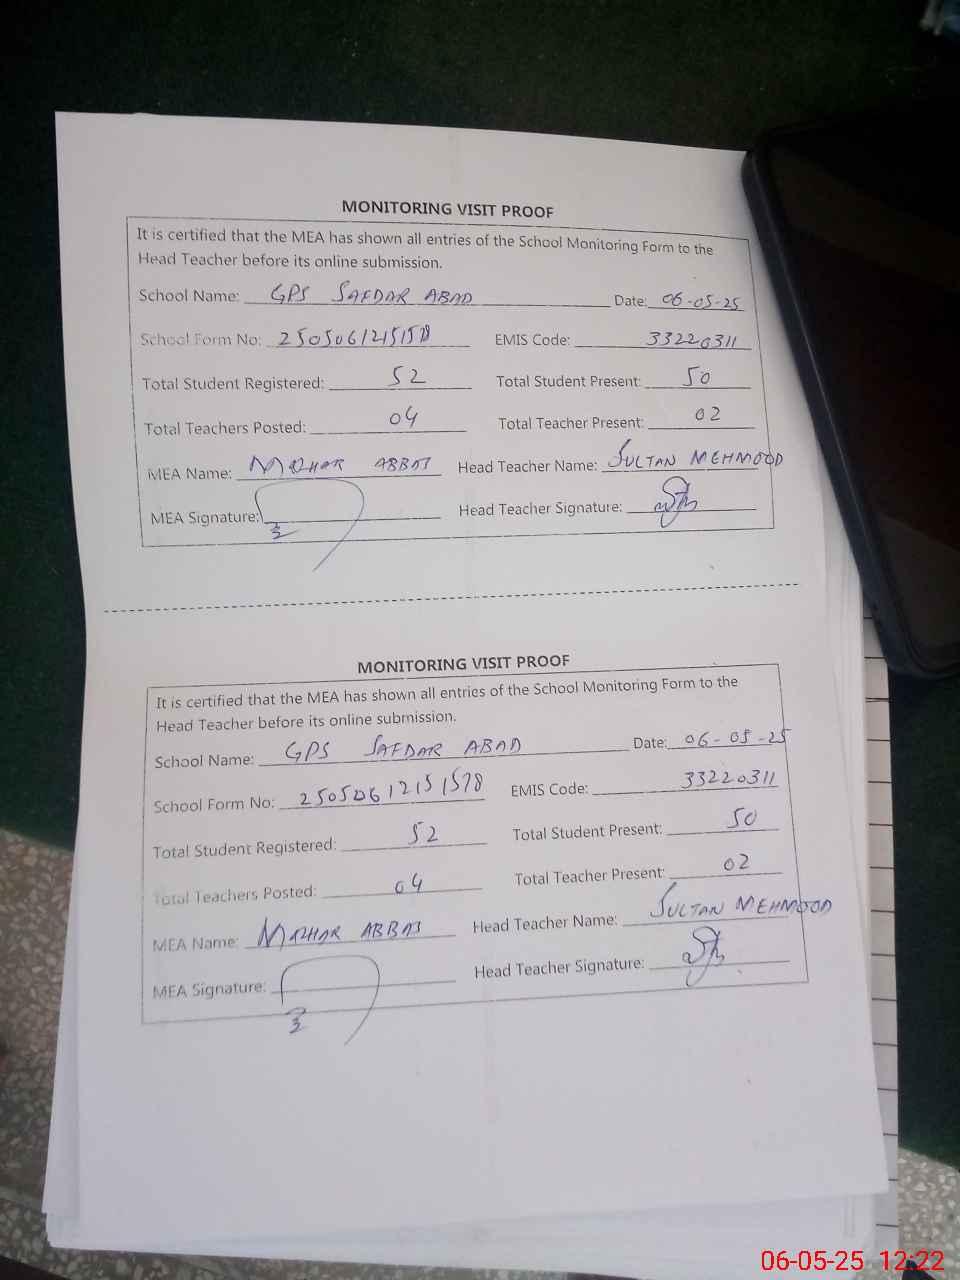 MONITORING VISIT PROOF
It is certified that the MEA has shown all entries of the School Monitoring Form to the
Head Teacher before its online submission.
School Name: GPS SAFDAR ABAD Date: 06-05-25
School Form No: EMIS Code: 33220311
Total Student Registered: 52 Total Student Present: 50
Total Teachers Posted: 04 Total Teacher Present: 02
MEA Name: MAZHAR ABBAS Head Teacher Name: SULTAN MEHMOOD
MEA Signature: Head Teacher Signature:
MONITORING VISIT PROOF
It is certified that the MEA has shown all entries of the School Monitoring Form to the
Head Teacher before its online submission.
School Name: GPS SAFDAR ABAD Date: 06-05-25
School Form No: 25050612151578 EMIS Code: 33220311
Total Student Registered: 52 Total Student Present: 50
Total Teachers Posted: 04 Total Teacher Present: 02
MEA Name: MAZHAR ABBAS Head Teacher Name: SULTAN MEHMOOD
MEA Signature: Head Teacher Signature:
06-05-25 12:22